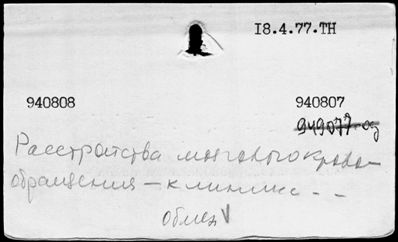 I8.4.77.TH
940808 940807
Расстройства мозгового крово-
обращения – клиника - -
обмен V